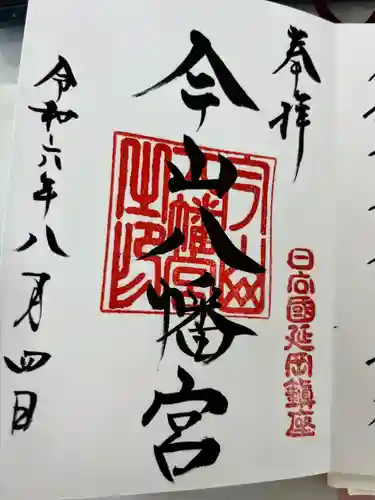 奉拝
日向國延岡鎮座
今山八幡宮
令和六年八月四日